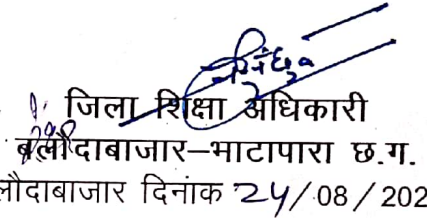 जिला शिक्षा अधिकारी
बलौदाबाजार–भाटापारा छ.ग.
लौदाबाजार दिनांक 24/08/202